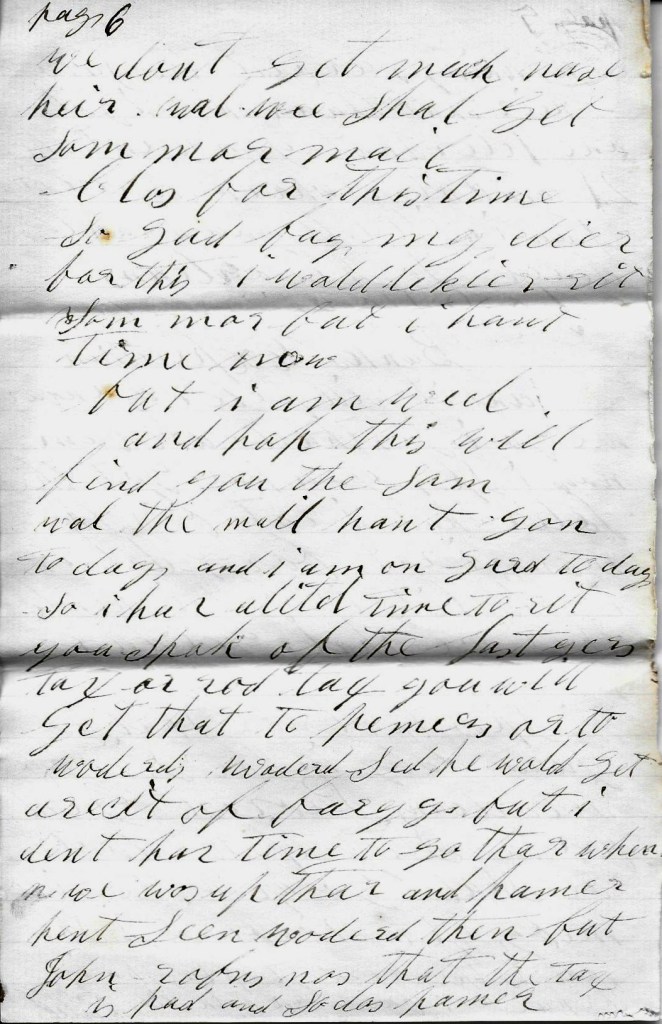 page 6
we dont get much nase
heir. wal wee shal get
som mor mail
Clos for this time
So gud bay my dier
for this i wold like to rit
som mor but i hant
time now
but i am well
and hop this will
find you the sam
wal the mall hant gon
to day and i am on gard to day
so i hav a litl time to rit
you spok of the last yers
tax or rod tax you will
get that to pemers or to
woderds woderd sed he wold get
a recit of but i
dent hav time to go thar when
we wos up thar and pamer
hent seen woderd then but
John robns nos that the tax
is pad and so dos pamer